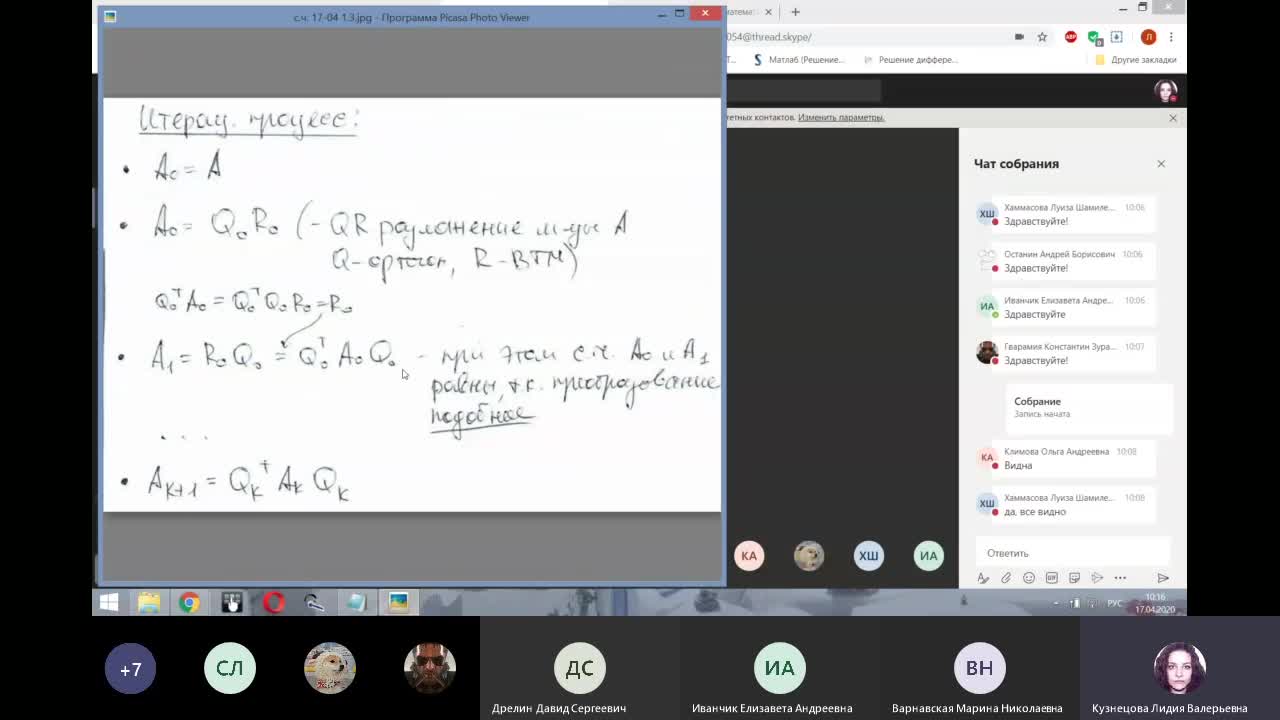 с.ч. 17-04 1.3.jpg - Программа Picasa Photo Viewer
Итерац. процесс:
• A₀ = A
• A₀ = Q₀R₀ (- QR разложение м-цы A
Q-ортогон, R-ВТМ)
Q₀ᵀA₀ = Q₀ᵀQ₀R₀ = R₀
• A₁ = R₀Q₀ = Q₀ᵀA₀Q₀ - при этом с.ч. A₀ и A₁
равны, т.к. преобразование
подобное
. . .
• Aₖ₊₁ = Qₖᵀ Aₖ Qₖ
054@thread.skype/
ABP
Л
Т...
Матлаб (Решение...
Решение диффере...
Другие закладки
контактов. Изменить параметры.
Чат собрания
ХШ
Хаммасова Луиза Шамиле... 10:06
Здравствуйте!
Останин Андрей Борисович 10:06
Здравствуйте!
ИА
Иванчик Елизавета Андре... 10:06
Здравствуйте
Гварамия Константин Зура... 10:07
Здравствуйте!
Собрание
Запись начата
КА
Климова Ольга Андреевна 10:08
Видна
ХШ
Хаммасова Луиза Шамиле... 10:08
да, все видно
Ответить
КА
ХШ
ИА
РУС
10:16
17.04.2020
+7
СЛ
ДС
ИА
ВН
Дрелин Давид Сергеевич
Иванчик Елизавета Андреевна
Варнавская Марина Николаевна
Кузнецова Лидия Валерьевна